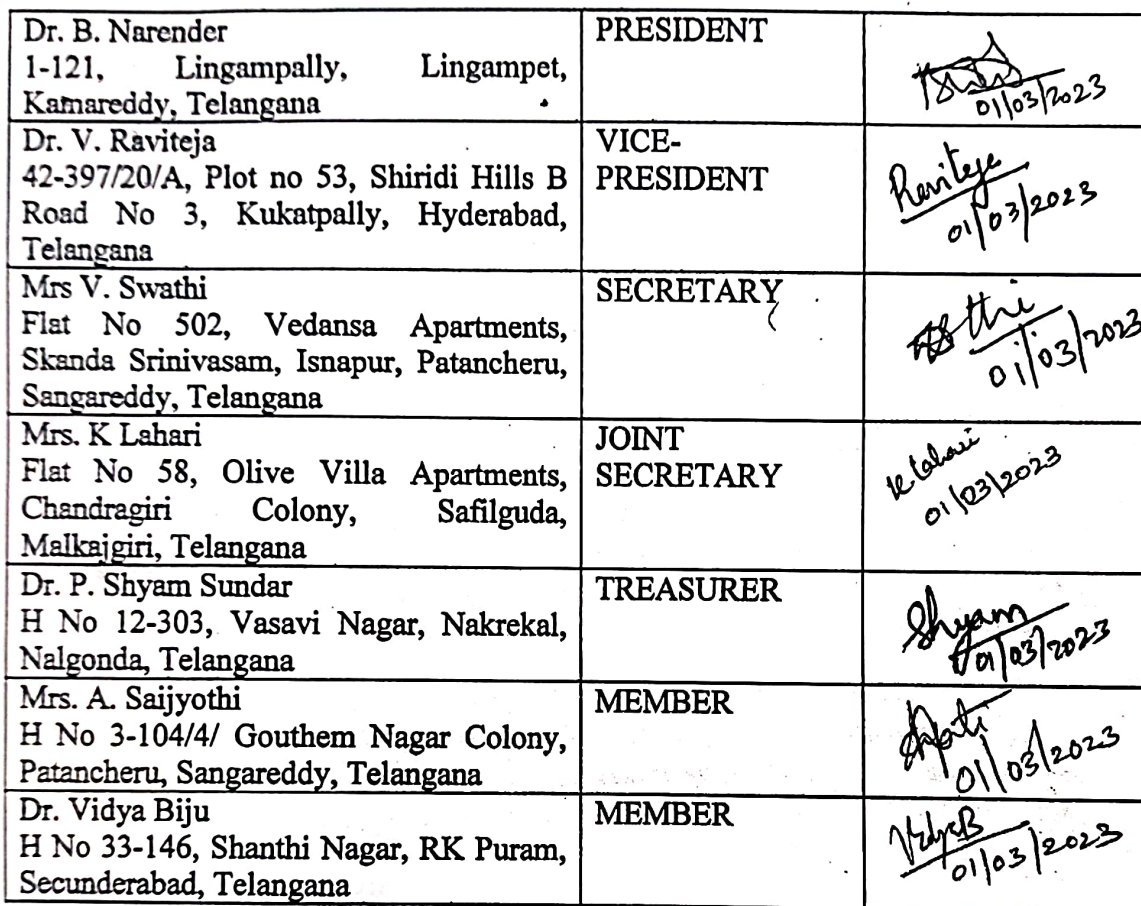 Dr. B. Narender
1-121, Lingampally, Lingampet,
Kamareddy, Telangana
PRESIDENT
01/03/2023
Dr. V. Raviteja
42-397/20/A, Plot no 53, Shiridi Hills B
Road No 3, Kukatpally, Hyderabad,
Telangana
VICE-
PRESIDENT
Raviteja
01/03/2023
Mrs V. Swathi
Flat No 502, Vedansa Apartments,
Skanda Srinivasam, Isnapur, Patancheru,
Sangareddy, Telangana
SECRETARY
01/03/2023
Mrs. K Lahari
Flat No 58, Olive Villa Apartments,
Chandragiri Colony, Safilguda,
Malkajgiri, Telangana
JOINT
SECRETARY
K Lahari
01/03/2023
Dr. P. Shyam Sundar
H No 12-303, Vasavi Nagar, Nakrekal,
Nalgonda, Telangana
TREASURER
Shyam
01/03/2023
Mrs. A. Saijyothi
H No 3-104/4/ Gouthem Nagar Colony,
Patancheru, Sangareddy, Telangana
MEMBER
01/03/2023
Dr. Vidya Biju
H No 33-146, Shanthi Nagar, RK Puram,
Secunderabad, Telangana
MEMBER
VidyaB
01/03/2023